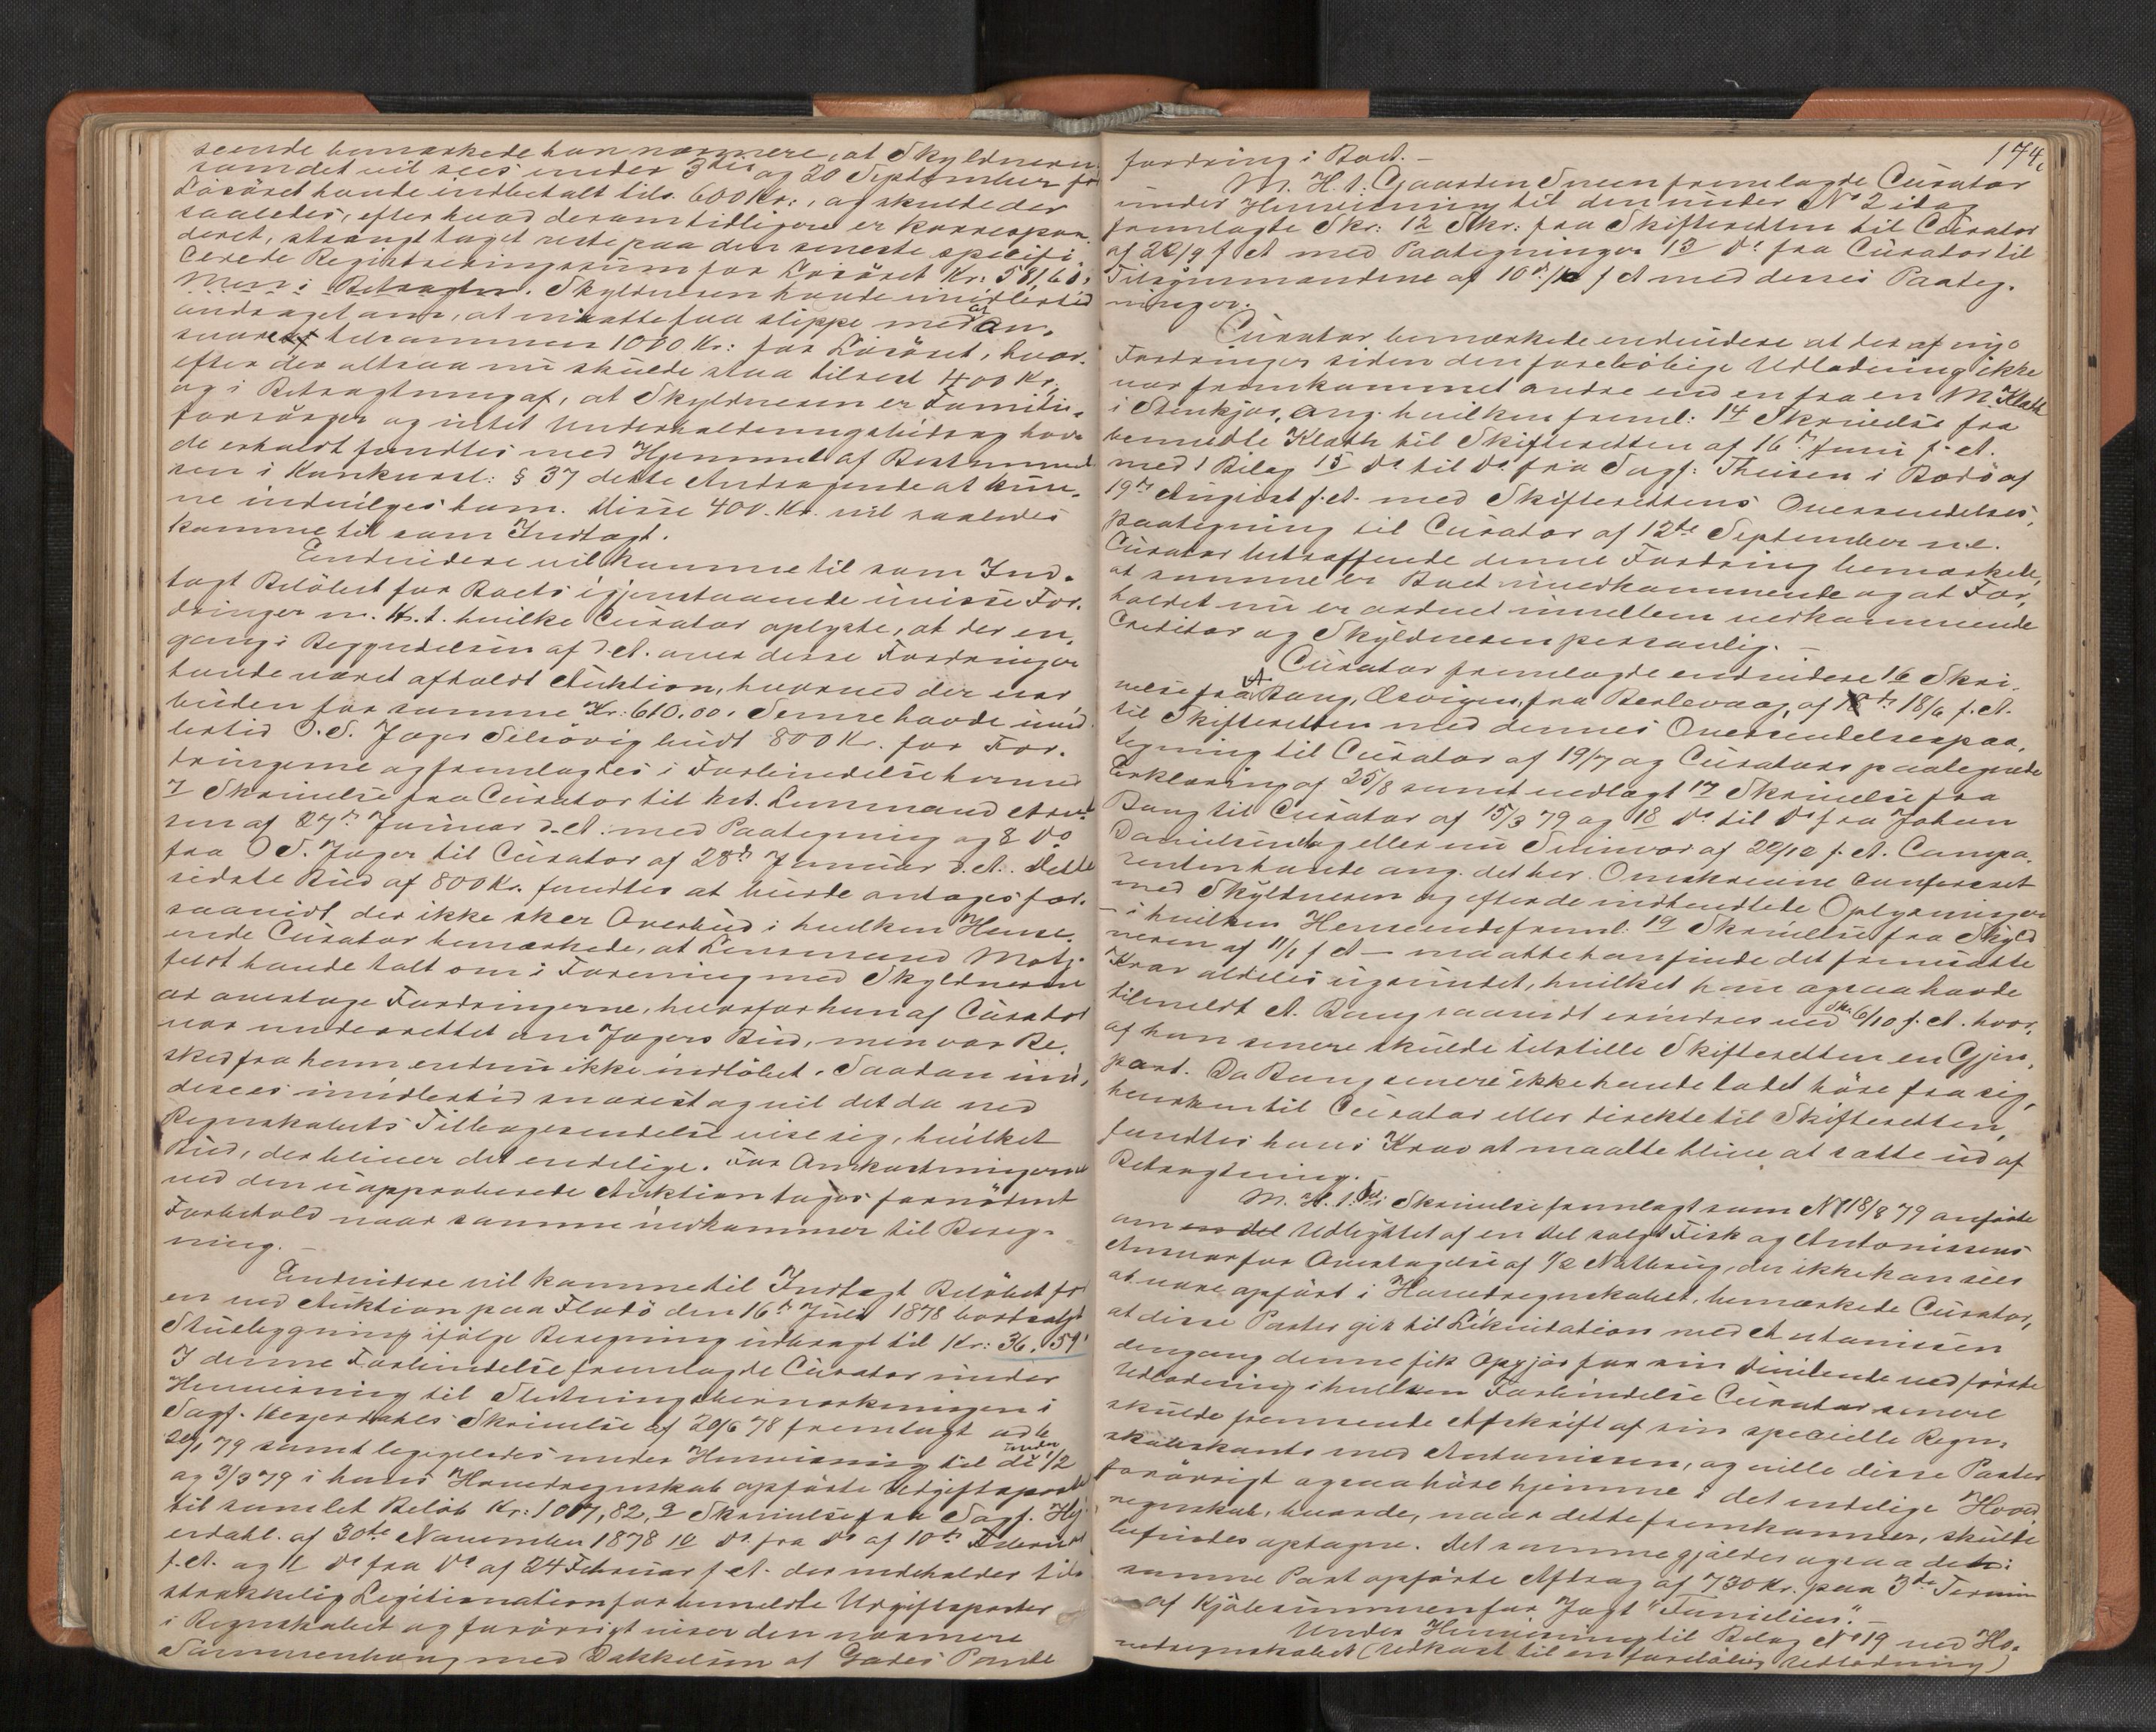 seende bemærkede han nærmere, at Skyldneren
som det vil sees under 3die og 20 September for
Løsøret havde indbetalt tils. 600 Kr:, og skulde der
saaledes, efter hvad derom tidligere er korrespon-
deret, strængt taget reste paa den seneste specifi-
cerede Registreringssum for Løsøret Kr: 581,60,
Skyldneren havde imidlertid
andraget om, at maatte faa slippe med at an-
svare tilsammen 1000 Kr: for Løsøret, hvor-
efter der altsaa nu skulde staa tilrest 400 Kr.
og i Betragtning af, at Skyldneren er Familie-
forsørger og intet Underholdningsbidrag hav-
de erholdt fandtes med Hjemmel af Bestemmel-
sen i Konkursl: § 37 dette Andragende at kun-
ne indvilges ham. Disse 400 Kr. vil saaledes
komme til som Indtægt.
Endvidere vil komme til som Ind-
tægt Beløbet for Boets igjenstaaende uvisse For-
dringer m. H. t. hvilke Curator oplyste, at der en-
gang i Begyndelsen af d. A. over disse Fordringer
havde været afholdt Auktion, hvorved der var
buden for samme Kr: 610,00. Senere havde imid-
lertid O. S. Jager Selsøvig budt 800 Kr. for For-
dringerne og fremlagtes i Forbindelse hermed
7 Skrivelse fra Curator til kst. Lensmand
sen af 27de Januar d. A. med Paategning og 8 Do
fra O S. Jager til Curator af 28de Januar d. A. Dette
sidste Bud af 800 Kr. fandtes at burde antages for-
saavidt der ikke sker Overbud i hvilken Hense-
ende Curator bemærkede, at Lensmand Motz-
feldt havde talt om i Forening med Skyldneren
at overtage Fordringerne, hvorfor han af Curator
var underrettet om Jagers Bud, men var Be-
sked fra ham endnu ikke indløbet. Saadan im-
desees imidlertid snarest og vil det da ved
Regnskabets Tilbagesendelse vise sig, hvilket
Bud, der bliver det endelige. For Omkostningerne
ved den uapproberede Auktion tages fornødent
Forbehold naar samme indkommer til Bereg-
ning. —
Endvidere vil komme til Indtægt Beløbet for
en ved Auktion paa Flatø den 16de Juli 1878 bortsolgt
Stuebygning ifølge Beregning udbragt til Kr: 36,59
I denne Forbindelse fremlagde Curator under
Henvisning til Slutningsbemærkningen i
Sagf. Hegerdahls Skrivelse af 20/6 78 fremlagt
20/1 79 samt ligeledes under Henvisning til de under 1/2
og 3/3 79 i hans Hovedregnskab opførte Udgiftsposter
til samlet Beløb Kr: 1007,82, 9 Skrivelse fra Sagf. Hej-
erdahl af 30te November 1878 10 Do fra Do af 10de Februar
f. A. og 11 Do fra Do af 24 Februar f A. der indeholder til-
strækkelig Legitimation for bemeldte Udgiftsposter
i Regnskabet og forøvrigt viser den nærmere
Sammenhæng med Dækkelsen af Gades Pante
174.
fordring i Boet. —
M. H. t. Gaarden Sneen fremlagde Curator
under Henvisning til den under No 2 idag
fremlagte Skr: 12 Skr: fra Skifteretten til Curator
af 22/9 f A med Paategninger 13 Do fra Curator til
Tilsynsmændene af 10de/10 f A med deres Paateg-
ninger.
Curator bemærkede endvidere at der af nye
Fordringer siden den foreløbige Udlodning ikke
var fremkommet andre end en fra en M. Klath
i Stenkjær, ang. hvilken freml: 14 Skrivelse fra
bemeldte Klath til Skifteretten af 16de Juni f. A.
med 1 Bilag 15 Do til Do fra Sagf: Theisen i Bodø af
19de August f. A. med Skifterettens Oversendelses-
paategning til Curator af 12te September s. A.
Curator betræffende denne Fordring bemærkede,
at samme er Boet uvedkommende og at For-
holdet nu er ordnet imellem vedkommende
Creditor og Skyldneren personlig. —
Curator fremlagde endvidere 16 Skri-
velse fra A. Bang, Øksvigen, fra Berlevaag, af 18/6 f. A.
til Skifteretten med dennes Oversendelsespaa-
tegning til Curator af 19/7 og Curators paategnede
Erklæring af 25/8 samt vedlagt 17 Skrivelse fra
Bang til Curator af 15/3 79 og 18 Do til Do fra Johan
Danielsen af 22/12 f. A. Compa-
renten havde ang. det her. Omskrevne confereret
med Skyldneren og efter de indhentede Oplysninger
— i hvilken Henseende freml: 19 Skrivelse fra Skyld-
neren af 11/1 f A — maatte han finde det fremsatte
Krav aldeles ugrundet, hvilket han ogsaa havde
tilmeldt A. Bang saavidt erindres ved Skr. 6/10 f. A. hvor-
af han senere skulde tilstille Skifteretten en Gjen-
part. Da Bang senere ikke havde ladet høre fra sig,
hverken til Curator eller direkte til Skifteretten,
fandtes hans Krav at maatte blive at sætte ud af
Betragtning. —
M. H. t. det i Skrivelse fremlagt som No 1 18/8 79 anførte
om en del Udbyttet af en Del solgt Fisk og Antonissens
Ansvar for Overtagelse af 1/2 Notbrug, der ikke kan sees
at være opført i Hovedregnskabet, bemærkede Curator,
at disse Poster gik til Likvidation med Antonissen
dengang denne fik Opgjør for sin Dividende ved første
Udlodning i hvilken Forbindelse Curator senere
skulde fremsende Afskrift af sin specielle Regn-
skabskonto med Antonissen, og ville disse Poster
forøvrigt ogsaa høre hjemme i det endelige Hoved-
regnskab, hvor de, naar dette fremkommer, skulle
befindes optagne. Det samme gjælder ogsaa det i
samme Post opførte Afdrag af 730 Kr. paa 3die Termin
af Kjøbesummen for Jagt "Familien". —
Under Henvisning til Bilag No 19 ved Ho-
vedregnskabet (Udkast til en foreløbig Udlodning)